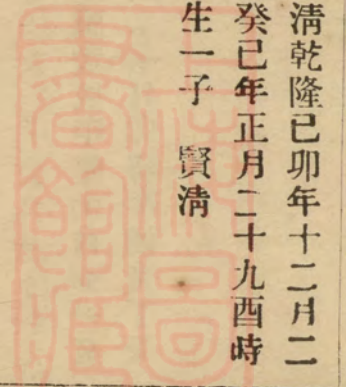 清乾隆己卯年十二月二
癸巳年正月二十九酉時
生一子　賢清